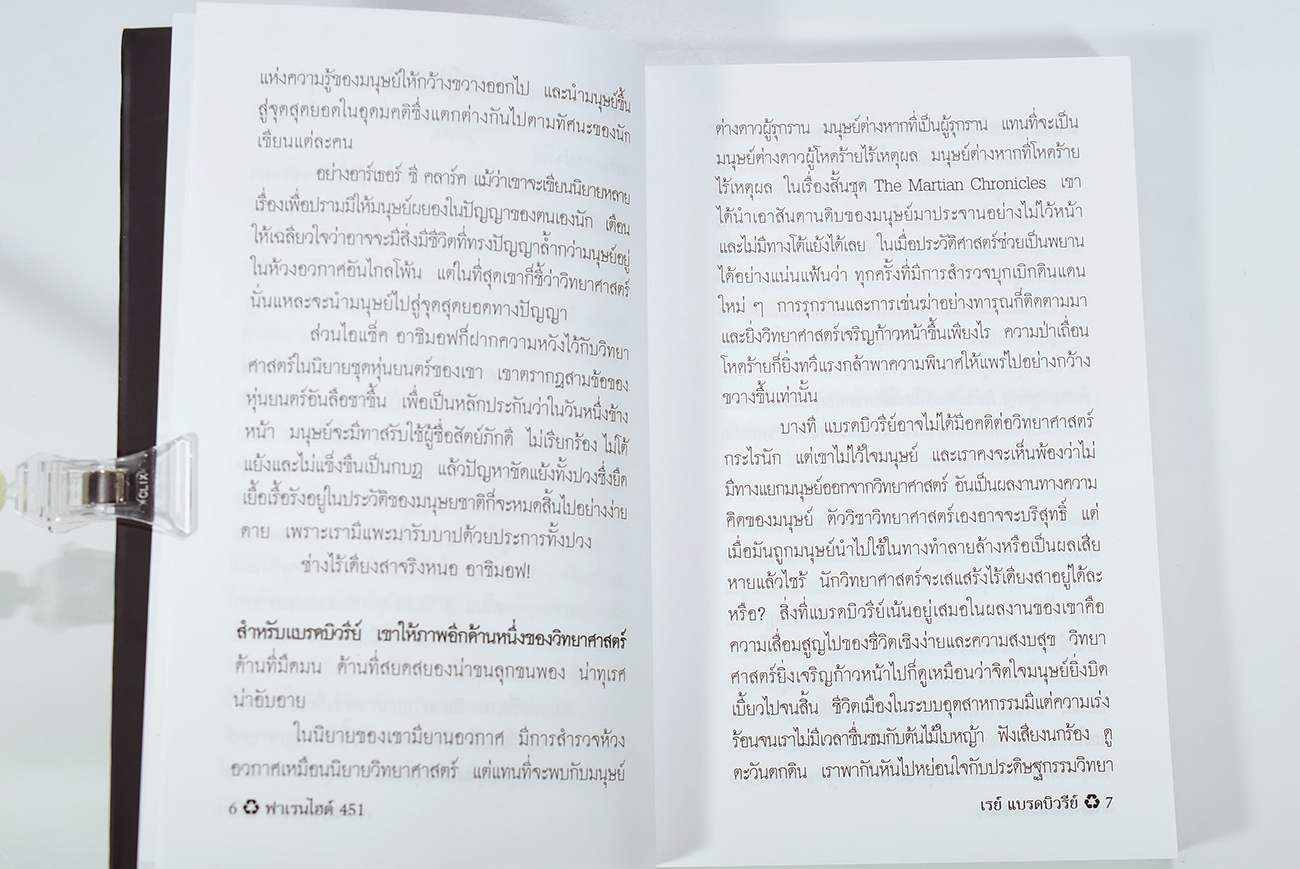 แห่งความรู้ของมนุษย์ให้กว้างขวางออกไป และนำมนุษย์ขึ้น
สู่จุดสุดยอดในอุดมคติซึ่งแตกต่างกันไปตามทัศนะของนัก
เขียนแต่ละคน
อย่างอาร์เธอร์ ซี คลาร์ค แม้ว่าเขาจะเขียนนิยายหลาย
เรื่องเพื่อปรามมิให้มนุษย์ผยองในปัญญาของตนเองนัก เตือน
ให้เฉลียวใจว่าอาจจะมีสิ่งมีชีวิตที่ทรงปัญญาล้ำกว่ามนุษย์อยู่
ในห้วงอวกาศอันไกลโพ้น แต่ในที่สุดเขาก็ชี้ว่าวิทยาศาสตร์
นั่นแหละจะนำมนุษย์ไปสู่จุดสุดยอดทางปัญญา
ส่วนไอแซ็ค อาซิมอฟก็ฝากความหวังไว้กับวิทยา
ศาสตร์ในนิยายชุดหุ่นยนตร์ของเขา เขาตรากฎสามข้อของ
หุ่นยนตร์อันลือชาขึ้น เพื่อเป็นหลักประกันว่าในวันหนึ่งข้าง
หน้า มนุษย์จะมีทาสรับใช้ผู้ซื่อสัตย์ภักดี ไม่เรียกร้อง ไม่โต้
แย้งและไม่แข็งขืนเป็นกบฏ แล้วปัญหาขัดแย้งทั้งปวงซึ่งยืด
เยื้อเรื้อรังอยู่ในประวัติของมนุษยชาติก็จะหมดสิ้นไปอย่างง่าย
ดาย เพราะเรามีแพะมารับบาปด้วยประการทั้งปวง
ช่างไร้เดียงสาจริงหนอ อาซิมอฟ!
สำหรับแบรดบิวรีย์ เขาให้ภาพอีกด้านหนึ่งของวิทยาศาสตร์
ด้านที่มืดมน ด้านที่สยดสยองน่าขนลุกขนพอง น่าทุเรศ
น่าอับอาย
ในนิยายของเขามียานอวกาศ มีการสำรวจห้วง
อวกาศเหมือนนิยายวิทยาศาสตร์ แต่แทนที่จะพบกับมนุษย์
6 ♻ ฟาเรนไฮต์ 451
ต่างดาวผู้รุกราน มนุษย์ต่างหากที่เป็นผู้รุกราน แทนที่จะเป็น
มนุษย์ต่างดาวผู้โหดร้ายไร้เหตุผล มนุษย์ต่างหากที่โหดร้าย
ไร้เหตุผล ในเรื่องสั้นชุด The Martian Chronicles เขา
ได้นำเอาสันดานดิบของมนุษย์มาประจานอย่างไม่ไว้หน้า
และไม่มีทางโต้แย้งได้เลย ในเมื่อประวัติศาสตร์ช่วยเป็นพยาน
ได้อย่างแน่นแฟ้นว่า ทุกครั้งที่มีการสำรวจบุกเบิกดินแดน
ใหม่ ๆ การรุกรานและการเข่นฆ่าอย่างทารุณก็ติดตามมา
และยิ่งวิทยาศาสตร์เจริญก้าวหน้าขึ้นเพียงไร ความป่าเถื่อน
โหดร้ายก็ยิ่งทวีแรงกล้าพาความพินาศให้แพร่ไปอย่างกว้าง
ขวางขึ้นเท่านั้น
บางที แบรดบิวรีย์อาจไม่ได้มีอคติต่อวิทยาศาสตร์
กระไรนัก แต่เขาไม่ไว้ใจมนุษย์ และเราคงจะเห็นพ้องว่าไม่
มีทางแยกมนุษย์ออกจากวิทยาศาสตร์ อันเป็นผลงานทางความ
คิดของมนุษย์ ตัววิชาวิทยาศาสตร์เองอาจจะบริสุทธิ์ แต่
เมื่อมันถูกมนุษย์นำไปใช้ในทางทำลายล้างหรือเป็นผลเสีย
หายแล้วไซร้ นักวิทยาศาสตร์จะเสแสร้งไร้เดียงสาอยู่ได้ละ
หรือ? สิ่งที่แบรดบิวรีย์เน้นอยู่เสมอในผลงานของเขาคือ
ความเสื่อมสูญไปของชีวิตเชิงง่ายและความสงบสุข วิทยา
ศาสตร์ยิ่งเจริญก้าวหน้าไปก็ดูเหมือนว่าจิตใจมนุษย์ยิ่งบิด
เบี้ยวไปจนสิ้น ชีวิตเมืองในระบบอุตสาหกรรมมีแต่ความเร่ง
ร้อนจนเราไม่มีเวลาชื่นชมกับต้นไม้ใบหญ้า ฟังเสียงนกร้อง ดู
ตะวันตกดิน เราพากันหันไปหย่อนใจกับประดิษฐกรรมวิทยา
เรย์ แบรดบิวรีย์ ♻ 7
CLIX